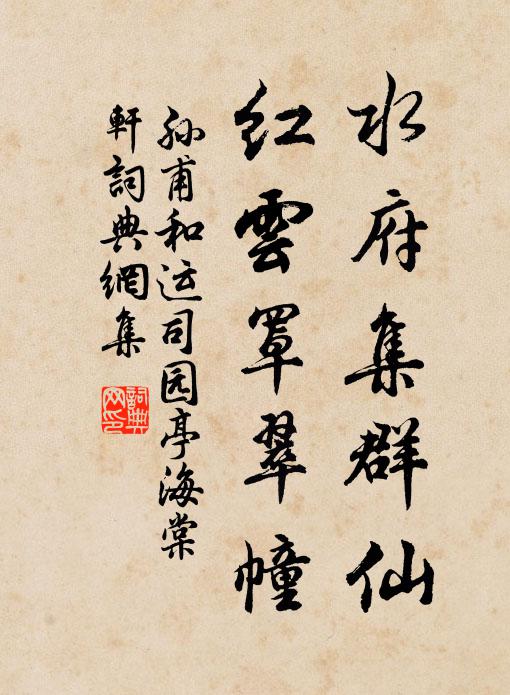 水府集群仙
红雲罩翠幢
孙甫和运司园亭海棠
軒詞典網集
詞典网印